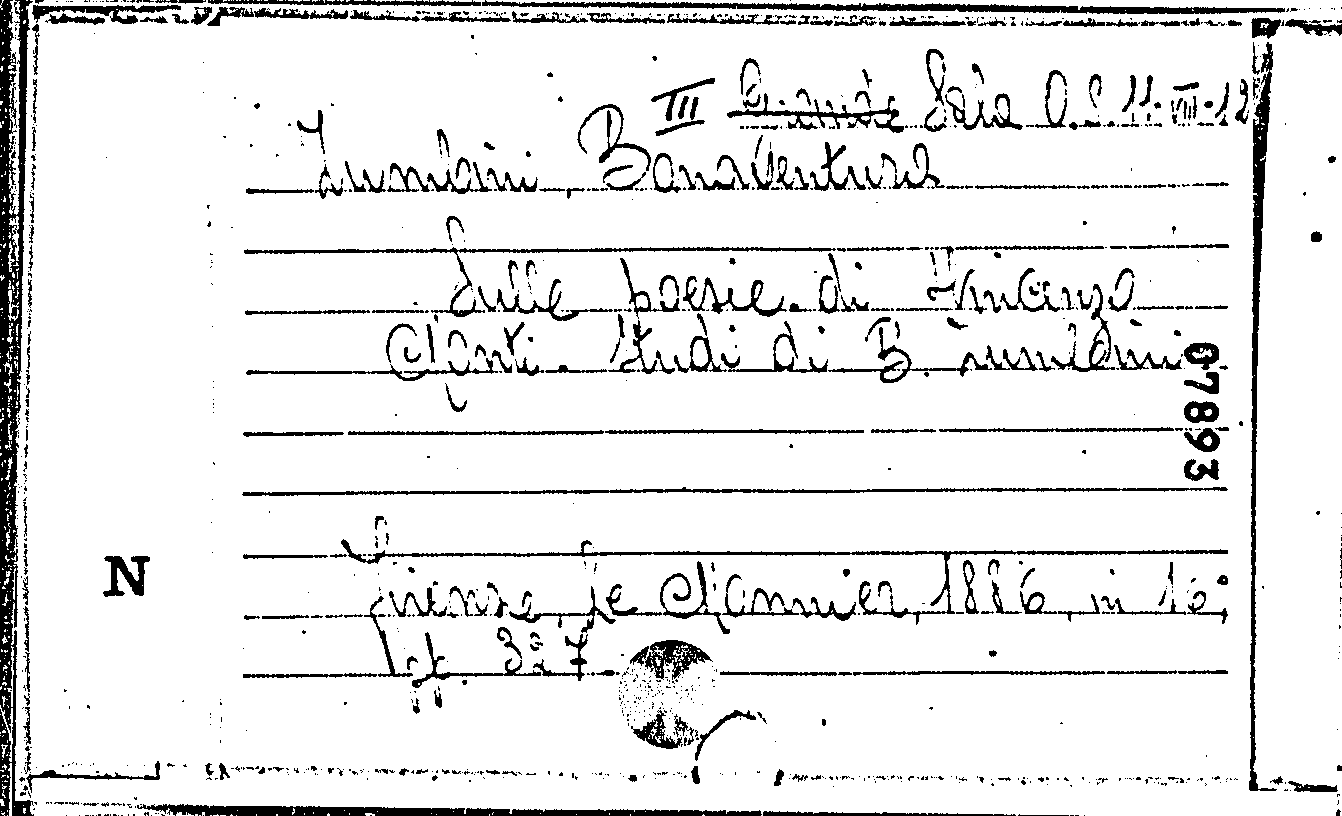 III Grande Sala O.S. 11.VIII.12
Zumbini, Bonaventura
Sulle poesie di Vincenzo
Monti. Studi di B. Zumbini.
07893
N
Firenze, Le Monnier, 1886, in 16°,
pp. 327